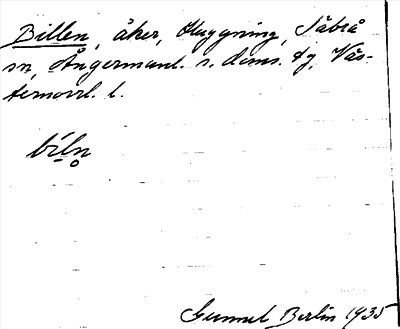 Billen, åker, Skuggning, Säbrå
sn, Ångermanl. s. doms. tg, Väs-
ternorrl. l.
bi̱ln̥
Gunnel Berlin 1935